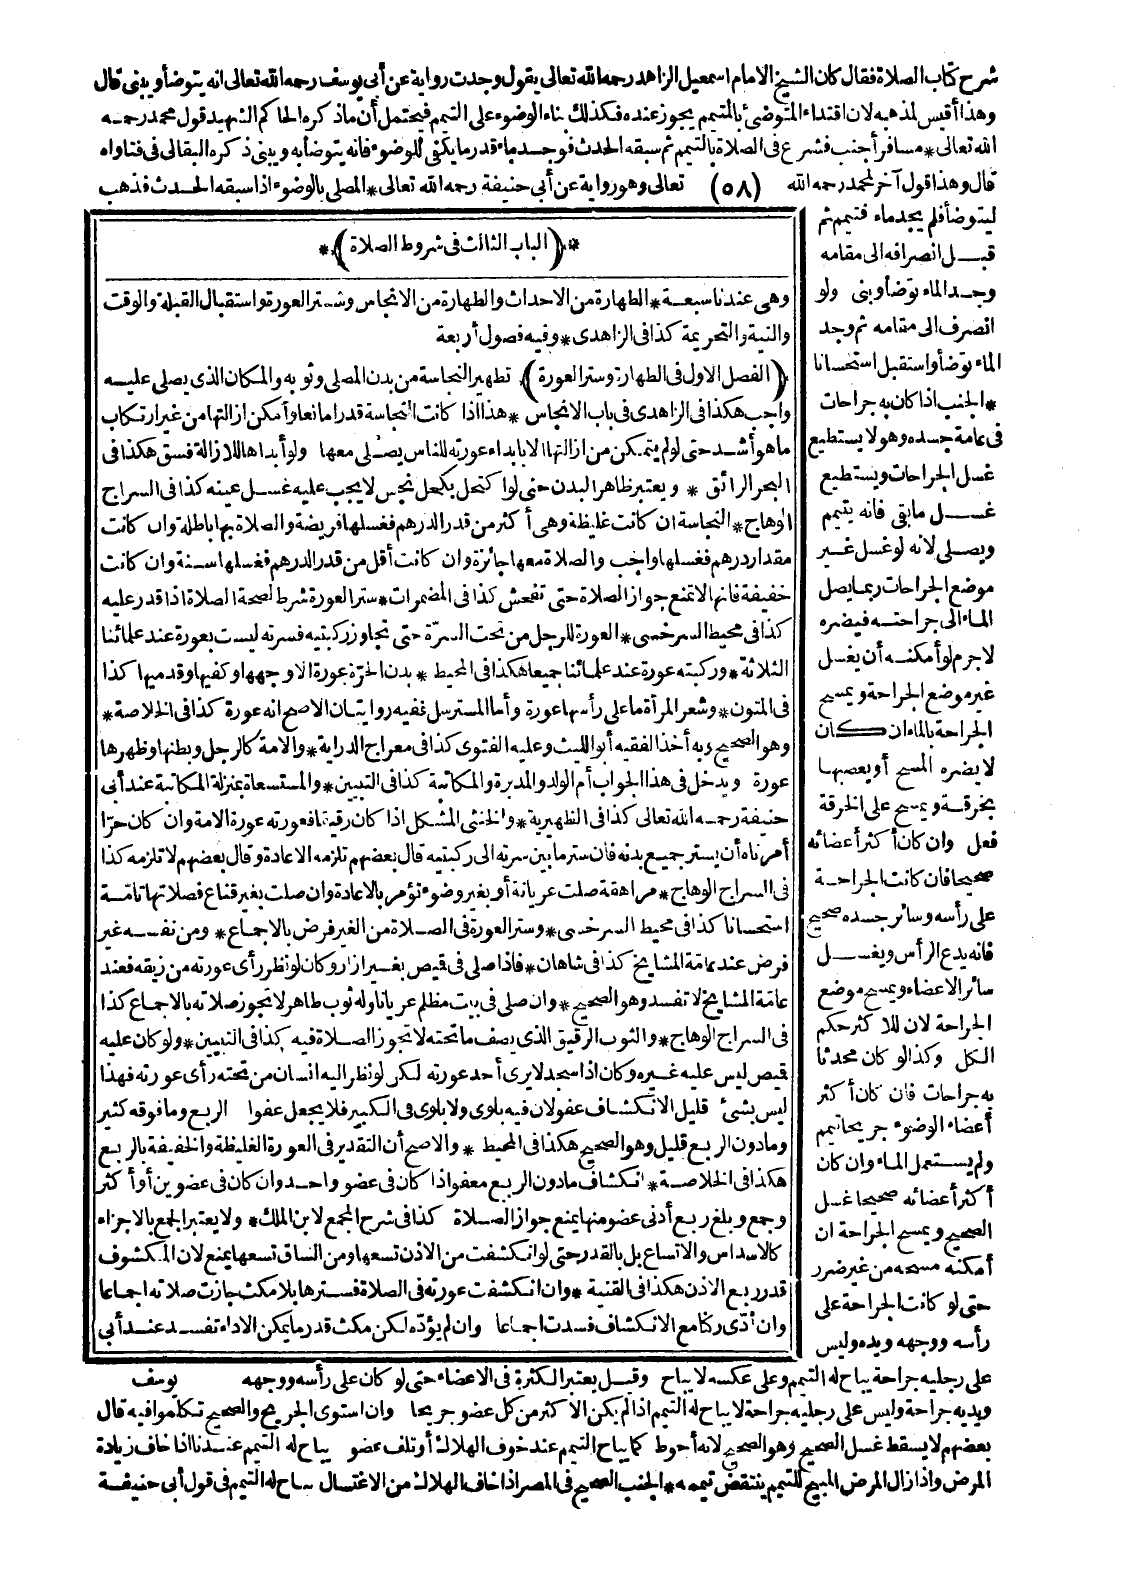 شرح كتاب الصلاة فقال كان الشيخ الامام اسمعيل الزاهد رحمه الله تعالى يقول وجدت رواية عن أبي يوسف رحمه الله تعالى انه يتوضأ ويبني قال
وهذا أقيس لمذهبه لان اقتداء المتوضئ بالمتيمم يجوز عنده فكذلك بناء الوضوء على التيمم فيحتمل أن ماذكره الحاكم الشهيد قول محمد رحمه
الله تعالى * مسافر أجنب فشرع في الصلاة بالتيمم ثم سبقه الحدث فوجد ماء قدر ما يكفي للوضوء فانه يتوضأ به ويبني ذكره البقالي في فتاواه
قال وهذا قول آخر لمحمد رحمه الله (٥٨) تعالى وهو رواية عن أبي حنيفة رحمه الله تعالى * المصلي بالوضوء اذا سبقه الحدث فذهب
ليتوضأ فلم يجد ماء فتيمم ثم
قبل انصرافه الى مقامه
وجد الماء توضأ وبنى ولو
انصرف الى مقامه ثم وجد
الماء توضأ واستقبل استحسانا
* الجنب اذا كان به جراحات
في عامة جسده وهو لا يستطيع
غسل الجراحات ويستطيع
غسل مابقي فانه يتيمم
ويصلي لانه لو غسل غير
موضع الجراحات ربما يصل
الماء الى جراحته فيضره
لاجرم لو أمكنه أن يغسل
غير موضع الجراحة ويمسح
الجراحة بالماء ان كان
لا يضره المسح أو يعصبها
بخرقة ويمسح على الخرقة
فعل وان كان أكثر أعضائه
صحيحا فان كانت الجراحة
على رأسه وسائر جسده صحيح
فانه يدع الرأس ويغسل
سائر الاعضاء ويمسح موضع
الجراحة لان للاكثر حكم
الكل وكذا لو كان محدثا
به جراحات فان كان أكثر
أعضاء الوضوء جريحا تيمم
ولم يستعمل الماء وان كان
أكثر أعضائه صحيحا غسل
الصحيح ويمسح الجراحة ان
أمكنه مسحه من غير ضرر
حتى لو كانت الجراحة على
رأسه ووجهه ويده وليس
على رجليه جراحة يباح له التيمم وعلى عكسه لا يباح وقيل يعتبر الكثرة في الاعضاء حتى لو كان على رأسه ووجهه
ويديه جراحة وليس على رجليه جراحة لا يباح له التيمم اذا لم يكن الاكثر من كل عضو جريحا وان استوى الجريح والصحيح تكلموا فيه قال
بعضهم لا يسقط غسل الصحيح وهو الصحيح لانه أحوط كما يباح التيمم عند خوف الهلاك أو تلف عضو يباح له التيمم عندنا اذا خاف زيادة
المرض واذا زال المرض المبيح للتيمم ينتقض تيممه * الجنب الصحيح في المصر اذا خاف الهلاك من الاغتسال يباح له التيمم في قول أبي حنيفة
* (الباب الثالث في شروط الصلاة) *
وهي عندنا سبعة * الطهارة من الاحداث والطهارة من الانجاس وستر العورة واستقبال القبلة والوقت
والنية والتحريمة كذا في الزاهدي * وفيه فصول أربعة
(الفصل الاول في الطهارة وستر العورة) تطهير النجاسة من بدن المصلي وثوبه والمكان الذي يصلي عليه
واجب هكذا في الزاهدي في باب الانجاس * هذا اذا كانت النجاسة قدرا مانعا وأمكن ازالتها من غير ارتكاب
ما هو أشد حتى لو لم يتمكن من ازالتها الا بابداء عورته للناس يصلي معها ولو أبداها للازالة فسق هكذا في
البحر الرائق * ويعتبر ظاهر البدن حتى لو اكتحل بكحل نجس لا يجب عليه غسل عينه كذا في السراج
الوهاج * النجاسة ان كانت غليظة وهي أكثر من قدر الدرهم فغسلها فريضة والصلاة بها باطلة وان كانت
مقدار درهم فغسلها واجب والصلاة معها جائزة وان كانت أقل من قدر الدرهم فغسلها سنة وان كانت
خفيفة فانها لا تمنع جواز الصلاة حتى تفحش كذا في المضمرات * ستر العورة شرط لصحة الصلاة اذا قدر عليه
كذا في محيط السرخسي * العورة للرجل من تحت السرة حتى تجاوز ركبتيه فسرته ليست بعورة عند علمائنا
الثلاثة * وركبته عورة عند علمائنا جميعا هكذا في المحيط * بدن الحرة عورة الا وجهها وكفيها وقدميها كذا
في المتون * وشعر المرأة ما على رأسها عورة وأما المسترسل ففيه روايتان الاصح انه عورة كذا في الخلاصة *
وهو الصحيح وبه أخذ الفقيه أبو الليث وعليه الفتوى كذا في معراج الدراية * والامة كالرجل وبطنها وظهرها
عورة ويدخل في هذا الجواب أم الولد والمدبرة والمكاتبة كذا في التبيين * والمستسعاة بمنزلة المكاتبة عند أبي
حنيفة رحمه الله تعالى كذا في الظهيرية * والخنثى المشكل اذا كان رقيقا فعورته عورة الامة وان كان حرا
أمرناه أن يستر جميع بدنه فان ستر ما بين سرته الى ركبتيه قال بعضهم تلزمه الاعادة وقال بعضهم لا تلزمه كذا
في السراج الوهاج * مراهقة صلت عريانة أو بغير وضوء تؤمر بالاعادة وان صلت بغير قناع فصلاتها تامة
استحسانا كذا في محيط السرخسي * وستر العورة في الصلاة من الغير فرض بالاجماع * ومن نفسه غير
فرض عند عامة المشايخ كذا في شاهان * فاذا صلى في قميص بغير ازار وكان لو نظر رأى عورته من زيقه فعند
عامة المشايخ لا تفسد وهو الصحيح * وان صلى في بيت مظلم عريانا وله ثوب طاهر لا تجوز صلاته بالاجماع كذا
في السراج الوهاج * والثوب الرقيق الذي يصف ما تحته لا تجوز الصلاة فيه كذا في التبيين * ولو كان عليه
قميص ليس عليه غيره وكان اذا سجد لا يرى أحد عورته لكن لو نظر اليه انسان من تحته رأى عورته فهذا
ليس بشئ قليل الانكشاف عفو لان فيه بلوى ولا بلوى في الكبير فلا يجعل عفوا الربع وما فوقه كثير
وما دون الربع قليل وهو الصحيح هكذا في المحيط * والاصح أن التقدير في العورة الغليظة والخفيفة بالربع
هكذا في الخلاصة * انكشاف ما دون الربع معفو اذا كان في عضو واحد وان كان في عضوين أو أكثر
وجمع وبلغ ربع أدنى عضو منها يمنع جواز الصلاة كذا في شرح المجمع لابن الملك * ولا يعتبر الجمع بالاجزاء
كالاسداس والاتساع بل بالقدر حتى لو انكشفت من الاذن تسعها ومن الساق تسعها يمنع لان المكشوف
قدر ربع الاذن هكذا في القنية * وان انكشفت عورته في الصلاة فسترها بلا مكث جازت صلاته اجماعا
وان أدى ركنا مع الانكشاف فسدت اجماعا وان لم يؤده لكن مكث قدر ما يمكن الاداء تفسد عند أبي
يوسف